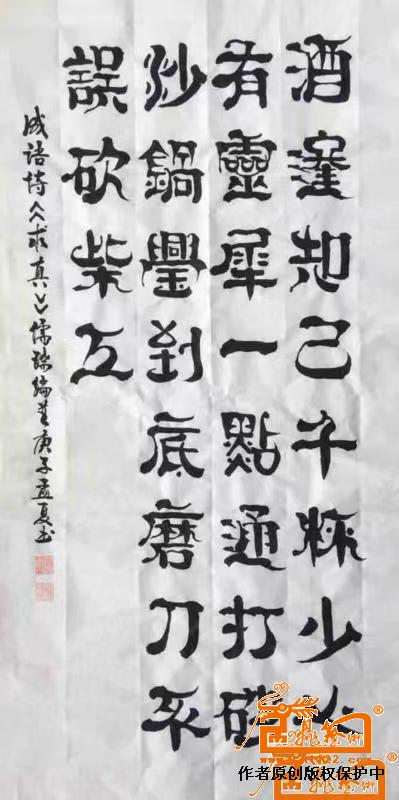 酒逢知己千杯少心
有靈犀一點通打破
沙鍋璺到底磨刀不
誤砍柴工
成语诗《求真》儒瑞编著庚子孟夏书
作者原创版权保护中